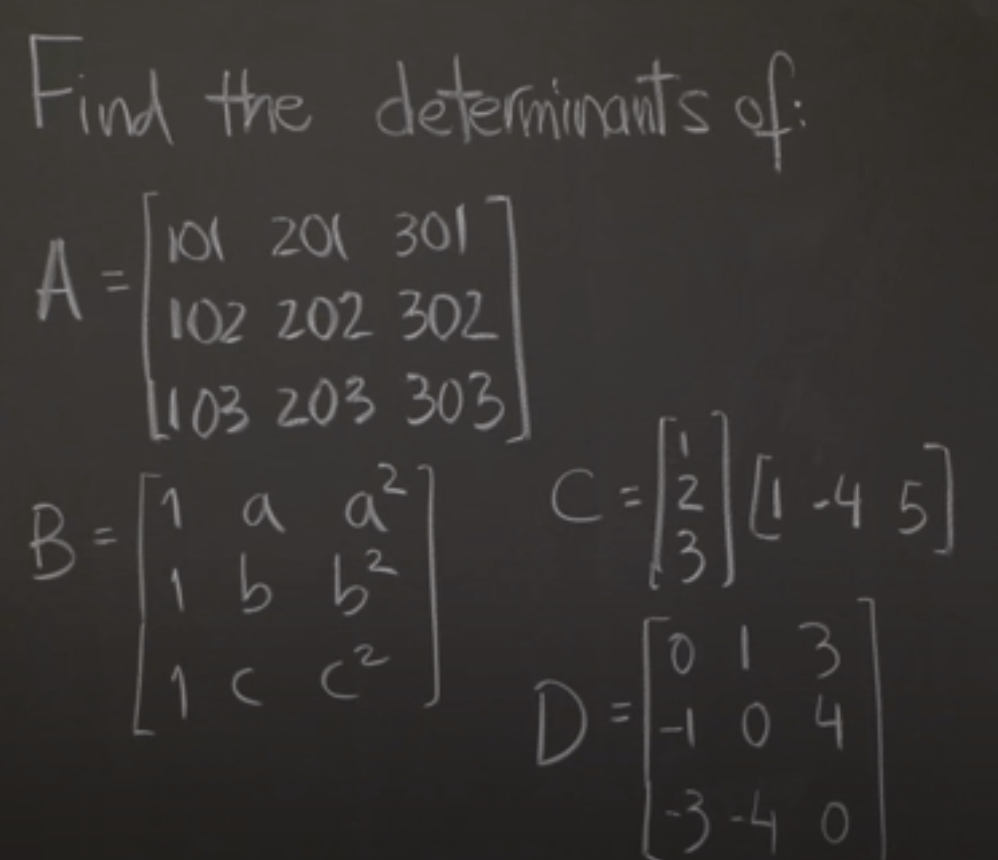 Find the determinants of:
A = [101 201 301
102 202 302
103 203 303]
B = [1 a a²
1 b b²
1 c c²]
C = [1
2
3] [1 -4 5]
D = [0 1 3
-1 0 4
-3 -4 0]